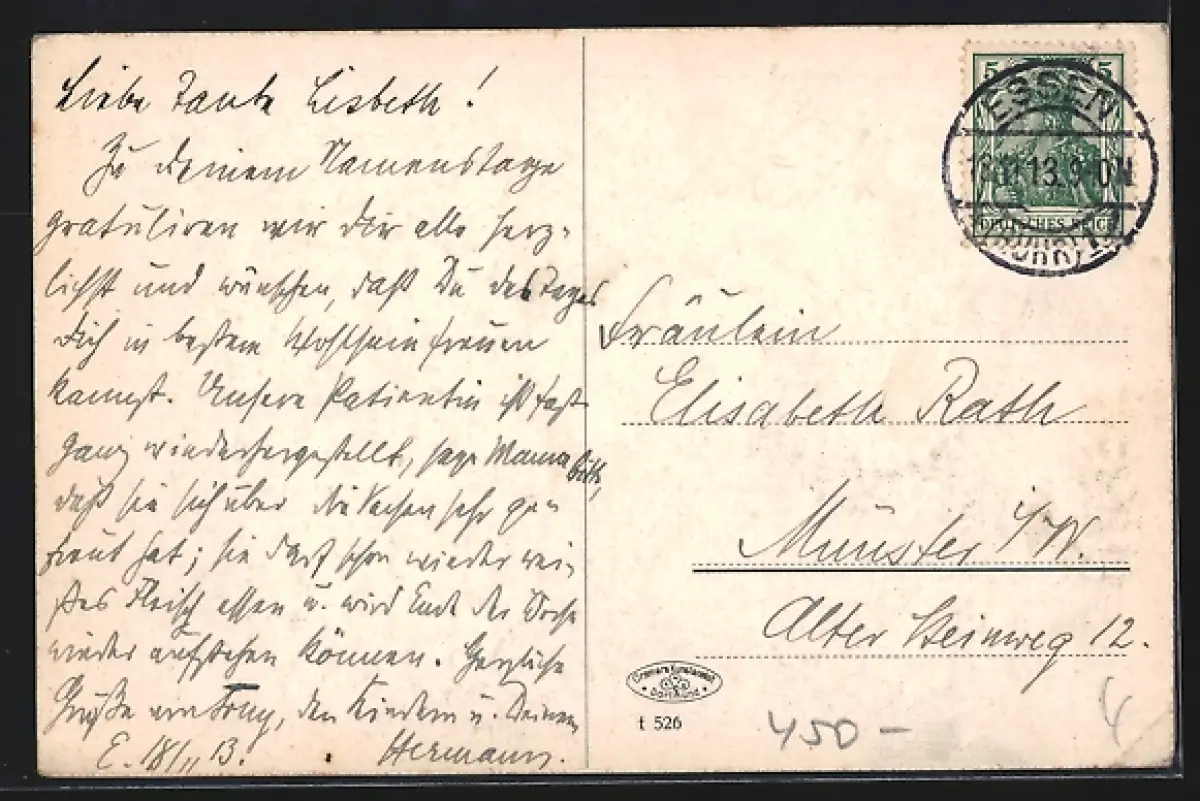 Liebe Tante Lisbeth!
Zu Deinem Namenstage
gratulieren wir Dir alle herz-
lichst und wünschen, daß Du des Tages
Dich in bestem Wohlsein freuen
kannst. Unsere Patientin ist fast
ganz wiederhergestellt, sage Mama bitte,
daß sie sich über die Sachen sehr ge-
freut hat; sie darf schon wieder wei-
ßes Fleisch essen u. wird Ende der Woche
wieder aufstehen können. Herzliche
Grüße von, den Kindern u. Deinem
E. 18/11 13. Hermann.
5 5
DEUTSCHES REICH
ESSEN
11.13.9-10N
(RUHR)
Fräulein
Elisabeth Rath
Münster i/W.
Alter Steinweg 12.
Cramers Kunstanstalt
Dortmund
t 526
450 -